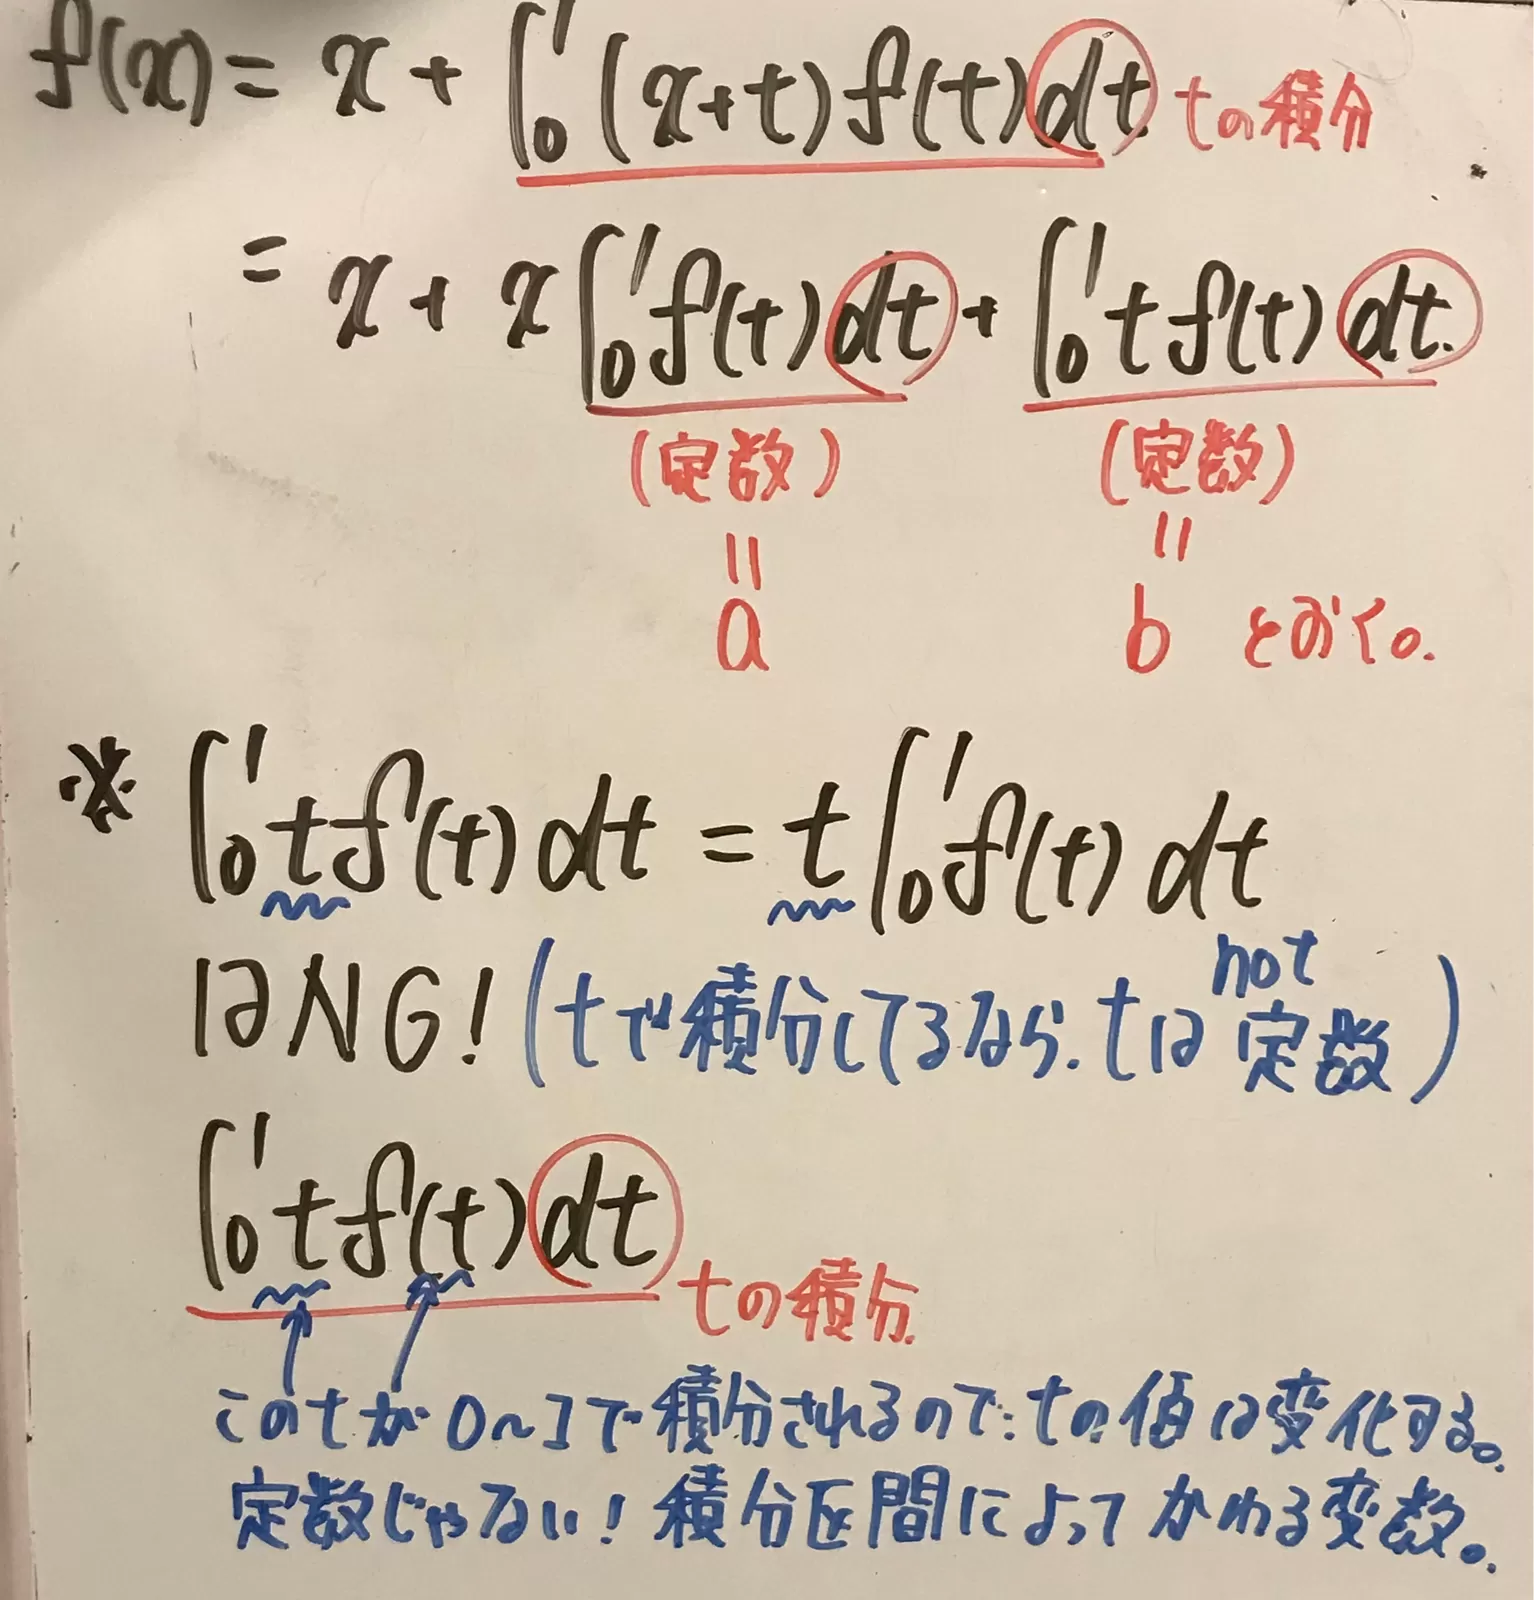 f(x) = x + ∫₀¹ (x+t) f(t) dt tの積分
= x + x ∫₀¹ f(t) dt + ∫₀¹ t f(t) dt.
(定数) (定数)
= =
a b とおく。
※ ∫₀¹ t f(t) dt = t ∫₀¹ f(t) dt
はNG! (tで積分してるなら. tは not 定数)
∫₀¹ t f(t) dt tの積分.
このtが0~1で積分されるので、tの値は変化する。
定数じゃない! 積分区間によってかわる変数。